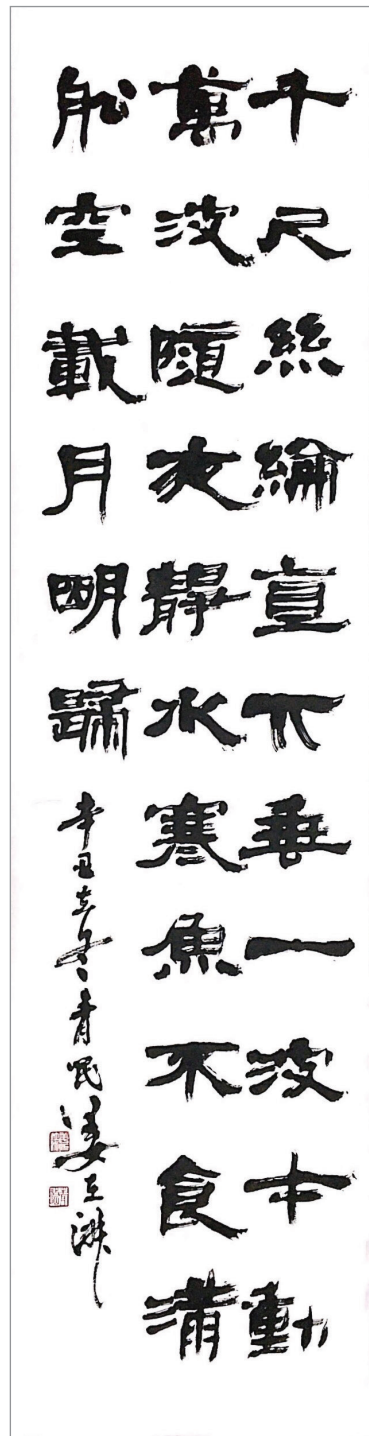 千尺絲綸直下垂一波才動
萬波隨夜靜水寒魚不食滿
船空載月明歸
辛丑立冬青